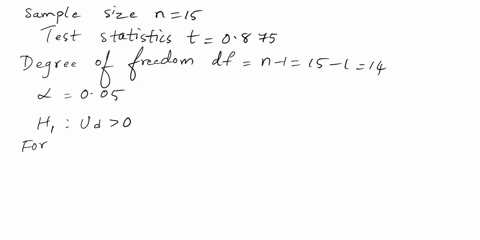 Sample size n=15
Test statistics t=0.875
Degree of freedom df = n-1=15-1=14
α = 0.05
H₁ : Ud >0
For